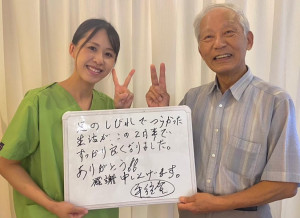 足のしびれでつらかった
生活が この2月半で
すっかり良くなりました。
ありがとう!!
感謝 申し上げます。